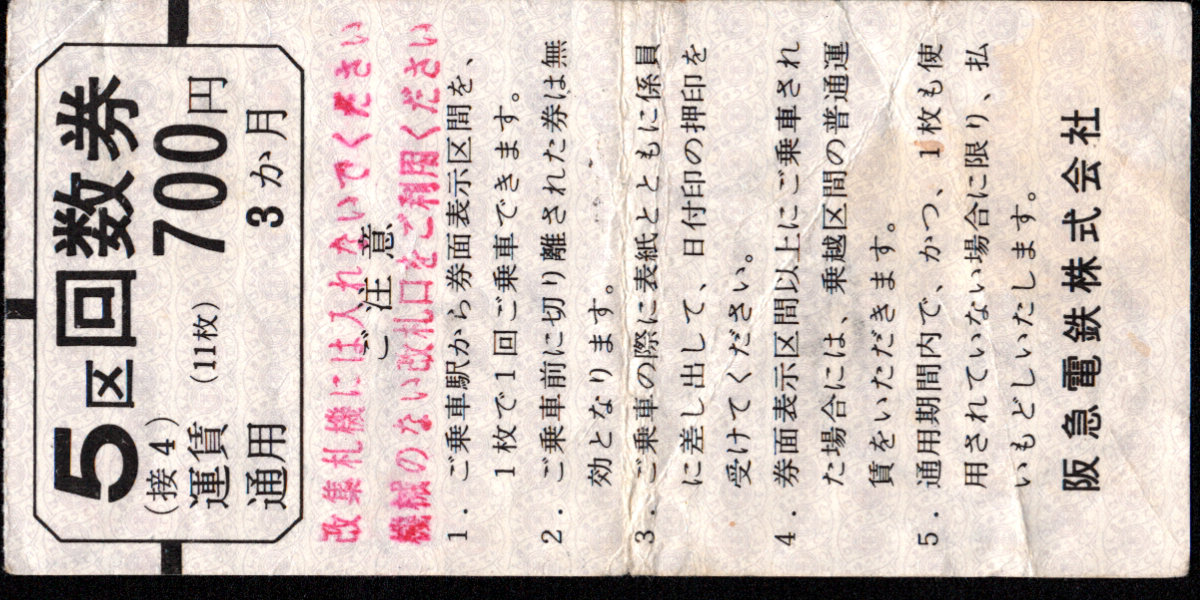 5区回数券
(接4)
運賃 (11枚) 700円
通用 3か月
改集札機には入れないでください
ご注意
機械のない改札口をご利用ください
1. ご乗車駅から券面表示区間を、
1枚で1回ご乗車できます。
2. ご乗車前に切り離された券は無
効となります。
3. ご乗車の際に表紙とともに係員
に差し出して、日付印の押印を
受けてください。
4. 券面表示区間以上にご乗車され
た場合には、乗越区間の普通運
賃をいただきます。
5. 通用期間内で、かつ、1枚も使
用されていない場合に限り、払
いもどしいたします。
阪急電鉄株式会社